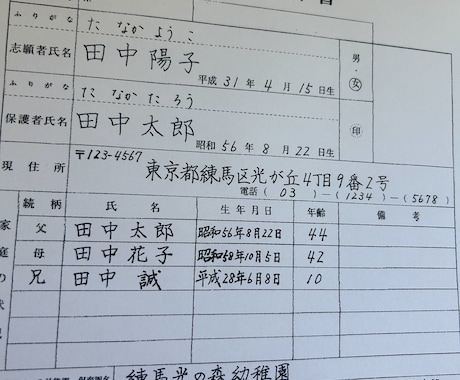 ふりがな たなかようこ
志願者氏名 田中陽子 男・女
平成 31年 4月 15日生
ふりがな たなかたろう
保護者氏名 田中太郎 印
昭和 56年 8月 22日生
現住所 〒123-4567
東京都練馬区光が丘4丁目9番2号
電話(03)-(1234)-(5678)
続柄 氏名 生年月日 年齢 備考
父 田中太郎 昭和56年8月22日 44
母 田中花子 昭和58年10月5日 42
兄 田中誠 平成28年6月8日 10
練馬光の森幼稚園